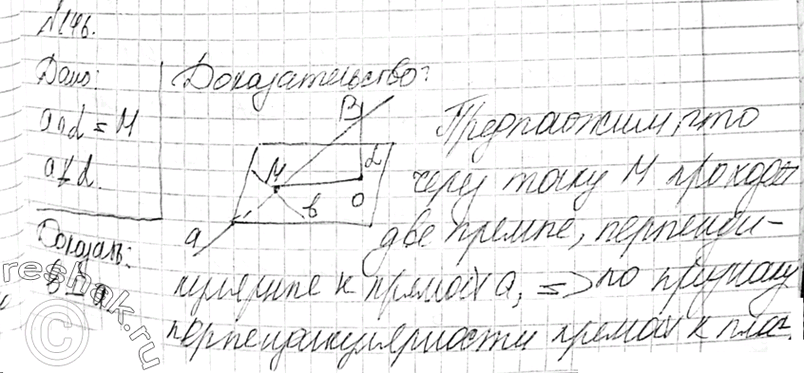 №146.
Дано:
a∩α = M
a⊥̸α.
Доказать:
b⊥a
Доказательство:
B
α
M
b
O
a
Предположим, что
через точку M проходят
две прямые, перпенди-
кулярные к прямой a, => по признаку
перпендикулярности прямой к плос.
© reshak.ru